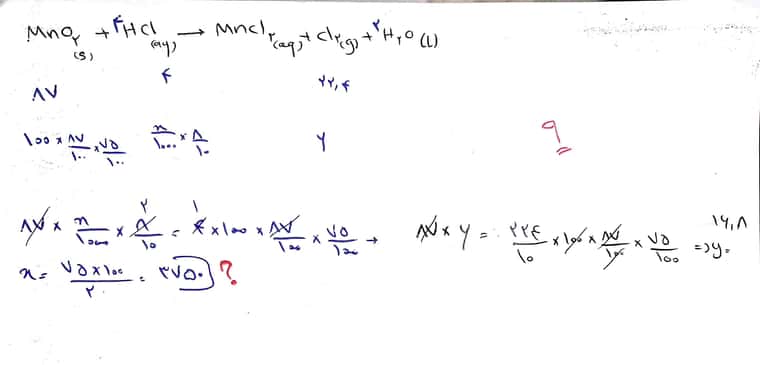 MnO۲ (s) + ۴HCl (aq) → MnCl۲ (aq) + Cl۲ (g) + ۲H۲O (L)
۴ ۲۲,۴
۸۷
۱۰۰ × ۸۷/۱۰۰ × ۷۵/۱۰۰ n/۱۰۰۰ × ۸/۱۰ y ۹
۸۷ × n/۱۰۰۰ × ۸/۱۰ = ۴ × ۱۰۰ × ۸۷/۱۰۰ × ۷۵/۱۰۰ → ۲ ۱ ۸۷ × y = ۲۲۴/۱۰ × ۱۰۰ × ۸۷/۱۰۰ × ۷۵/۱۰۰ => y = ۱۶,۸
n = ۷۵×۱۰۰/۲ = ۳۷۵۰ ?